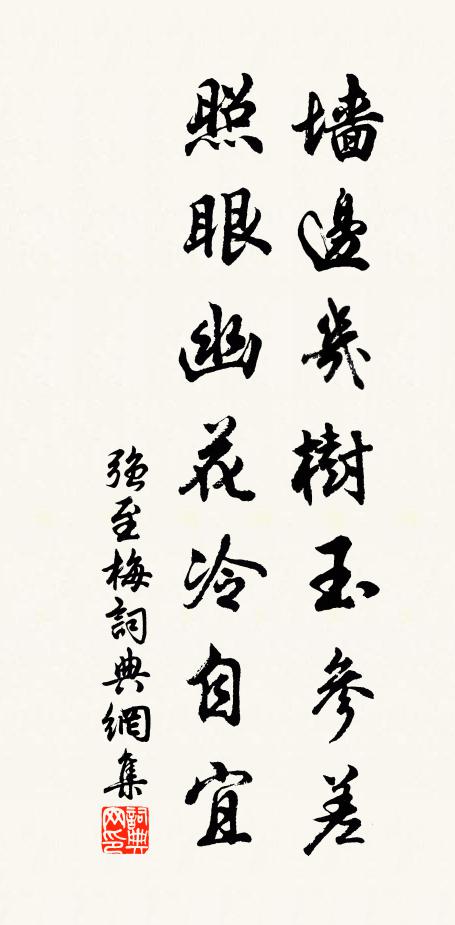 墙邊幾樹玉參差
照眼幽花冷自宜
強至梅詞典網集
詞典网印